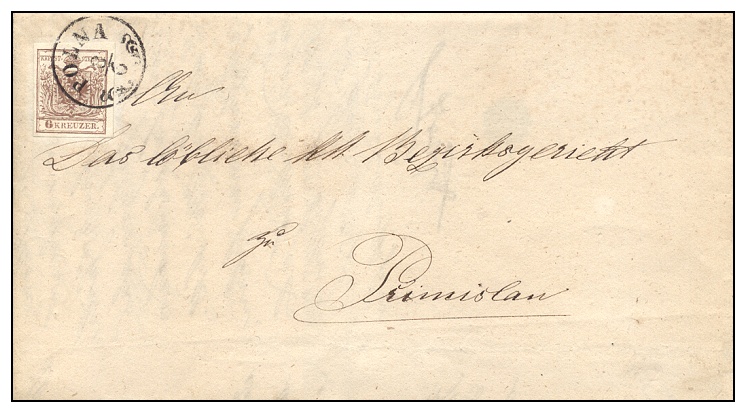 POLNA
6 KREUZER.
An
Das löbliche kk Bezirksgericht
zu
Primislau